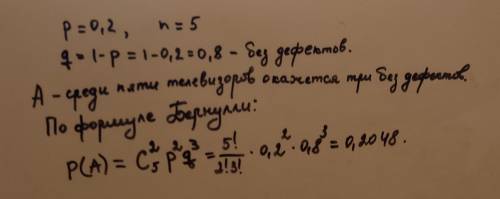 p = 0,2 , n = 5
q = 1 - p = 1 - 0,2 = 0,8 - без дефектов.
A - среди пяти телевизоров окажется три без дефектов.
По формуле Бернулли:
P(A) = C₅² p² q³ = 5!/2!3! · 0,2² · 0,8³ = 0,2048.